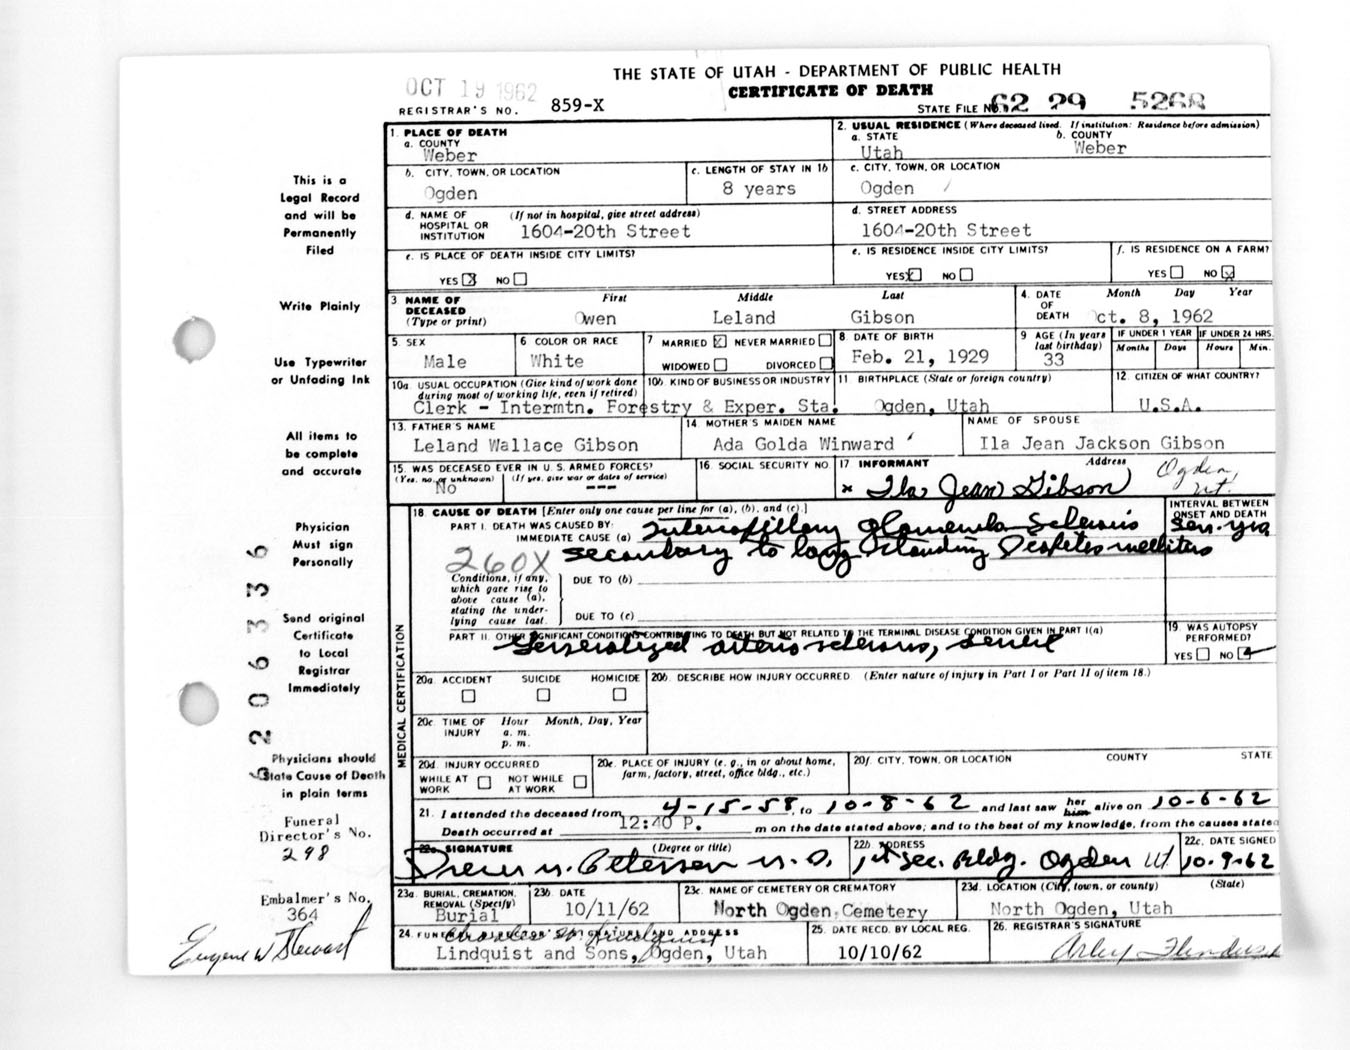 THE STATE OF UTAH - DEPARTMENT OF PUBLIC HEALTH
CERTIFICATE OF DEATH
OCT 19 1962
REGISTRAR'S NO. 859-X
STATE FILE NO. 62 29 5268
1. PLACE OF DEATH
a. COUNTY
Weber
2. USUAL RESIDENCE (Where deceased lived. If institution: Residence before admission)
a. STATE
Utah
b. COUNTY
Weber
b. CITY, TOWN, OR LOCATION
Ogden
c. LENGTH OF STAY IN 1b
8 years
c. CITY, TOWN, OR LOCATION
Ogden
d. NAME OF HOSPITAL OR INSTITUTION (If not in hospital, give street address)
1604-20th Street
d. STREET ADDRESS
1604-20th Street
e. IS PLACE OF DEATH INSIDE CITY LIMITS?
YES X NO
e. IS RESIDENCE INSIDE CITY LIMITS?
YES X NO
f. IS RESIDENCE ON A FARM?
YES NO X
3 NAME OF DECEASED (Type or print)
First Middle Last
Owen Leland Gibson
4. DATE OF DEATH
Month Day Year
Oct. 8, 1962
5. SEX
Male
6 COLOR OR RACE
White
7 MARRIED X NEVER MARRIED
WIDOWED DIVORCED
8 DATE OF BIRTH
Feb. 21, 1929
9 AGE (In years last birthday)
33
IF UNDER 1 YEAR
Months Days
IF UNDER 24 HRS.
Hours Min.
10a. USUAL OCCUPATION (Give kind of work done during most of working life, even if retired)
10b. KIND OF BUSINESS OR INDUSTRY
Clerk - Intermtn. Forestry & Exper. Sta.
11 BIRTHPLACE (State or foreign country)
Ogden, Utah
12. CITIZEN OF WHAT COUNTRY?
U.S.A.
13. FATHER'S NAME
Leland Wallace Gibson
14 MOTHER'S MAIDEN NAME
Ada Golda Winward
NAME OF SPOUSE
Ila Jean Jackson Gibson
15. WAS DECEASED EVER IN U.S. ARMED FORCES?
(Yes, no, or unknown) (If yes, give war or dates of service)
No ---
16. SOCIAL SECURITY NO.
17 INFORMANT Address
x Ila Jean Gibson Ogden, Ut.
18 CAUSE OF DEATH [Enter only one cause per line for (a), (b), and (c).]
PART I. DEATH WAS CAUSED BY:
IMMEDIATE CAUSE (a) Intercapillary glomerulo-sclerosis
secondary to long standing Diabetes mellitus
260X
INTERVAL BETWEEN ONSET AND DEATH
Sev. yrs.
Conditions, if any, which gave rise to above cause (a), stating the underlying cause last.
DUE TO (b)
DUE TO (c)
PART II. OTHER SIGNIFICANT CONDITIONS CONTRIBUTING TO DEATH BUT NOT RELATED TO THE TERMINAL DISEASE CONDITION GIVEN IN PART I(a)
Generalized arteriosclerosis, severe
19. WAS AUTOPSY PERFORMED?
YES NO
MEDICAL CERTIFICATION
20a. ACCIDENT SUICIDE HOMICIDE
20b. DESCRIBE HOW INJURY OCCURRED. (Enter nature of injury in Part I or Part II of item 18.)
20c. TIME OF INJURY Hour Month, Day, Year
a. m.
p. m.
20d. INJURY OCCURRED
WHILE AT WORK NOT WHILE AT WORK
20e. PLACE OF INJURY (e. g., in or about home, farm, factory, street, office bldg., etc.)
20f. CITY, TOWN, OR LOCATION COUNTY STATE
21. I attended the deceased from 4-15-58, to 10-8-62 and last saw her him alive on 10-6-62
Death occurred at 12:40 P. m on the date stated above; and to the best of my knowledge, from the causes stated
22a. SIGNATURE (Degree or title)
Drew M. Petersen M.D.
22b. ADDRESS
1st Sec. Bldg. Ogden Ut
22c. DATE SIGNED
10-9-62
23a. BURIAL, CREMATION, REMOVAL (Specify)
Burial
23b. DATE
10/11/62
23c. NAME OF CEMETERY OR CREMATORY
North Ogden Cemetery
23d. LOCATION (City, town, or county) (State)
North Ogden, Utah
24. FUNERAL DIRECTOR'S SIGNATURE AND ADDRESS
Lindquist and Sons, Ogden, Utah
25. DATE RECD. BY LOCAL REG.
10/10/62
26. REGISTRAR'S SIGNATURE
This is a
Legal Record
and will be
Permanently
Filed
Write Plainly
Use Typewriter
or Unfading Ink
All items to
be complete
and accurate
Physician
Must sign
Personally
Send original
Certificate
to Local
Registrar
Immediately
Physicians should
State Cause of Death
in plain terms
Funeral
Director's No.
298
Embalmer's No.
364
Eugene W Stewart